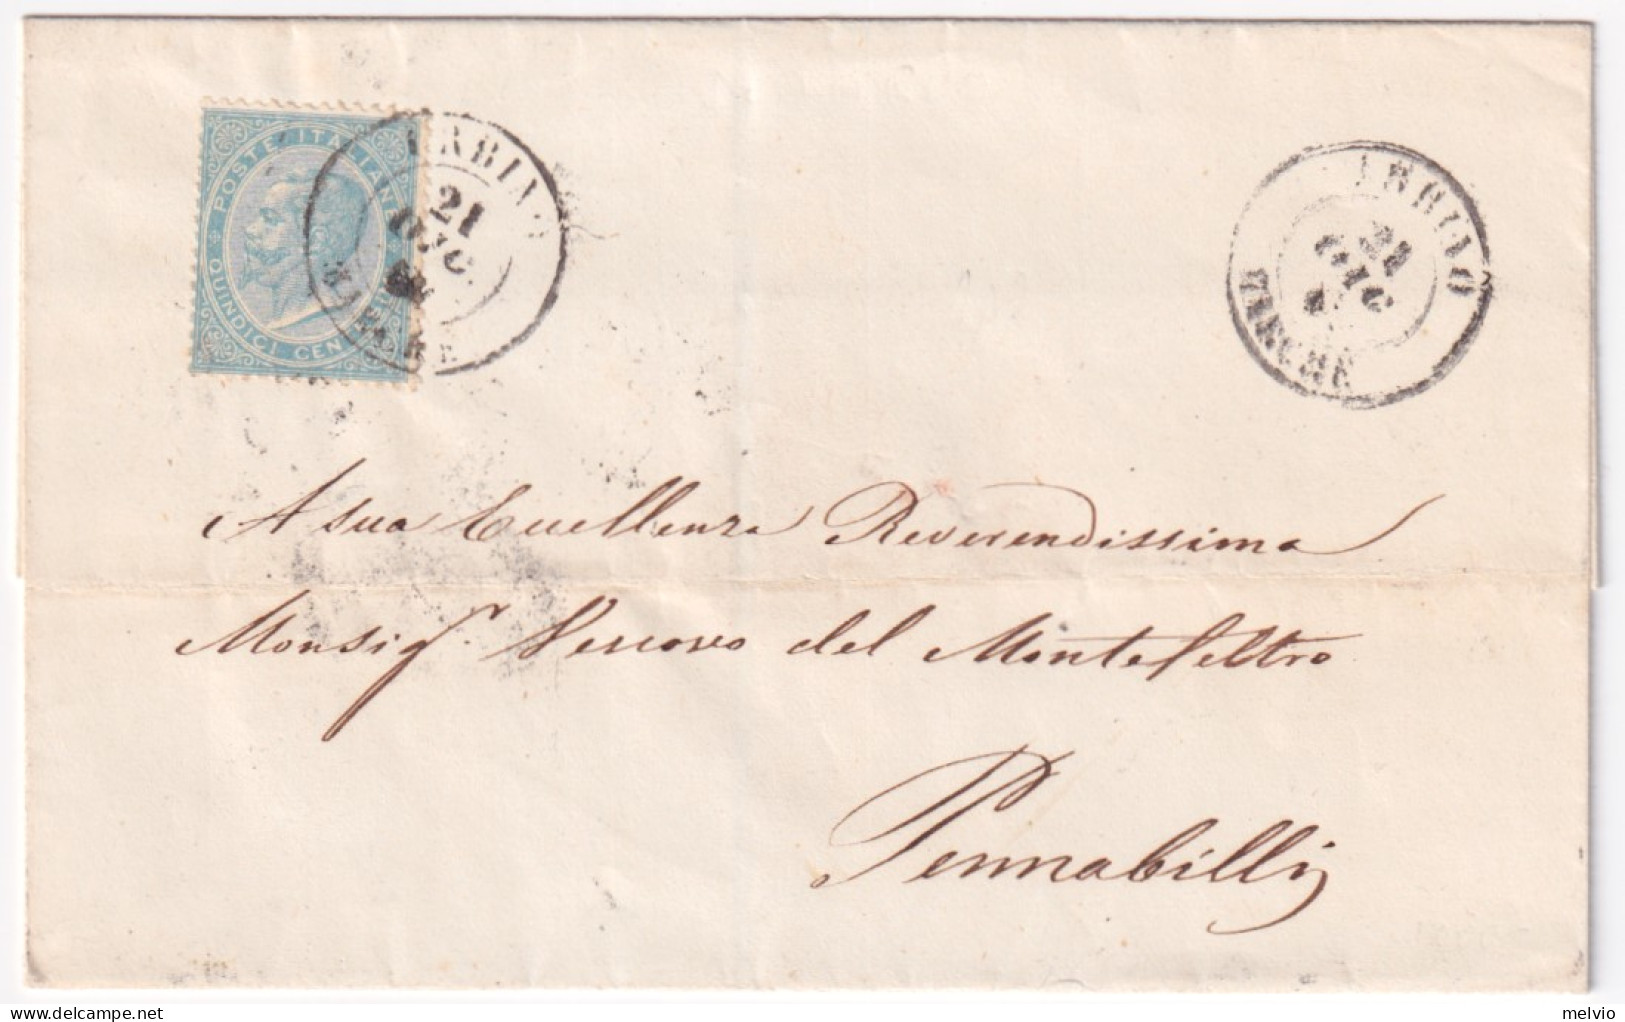 POSTE ITALIANE
QUINDICI CENT
URBINO
21
GIUG
MARCHE
URBINO
21
GIUG
MARCHE
A sua Eccellenza Reverendissima
Monsigr. Vescovo del Montefeltro
Pennabilli
delcampe.net
melvio